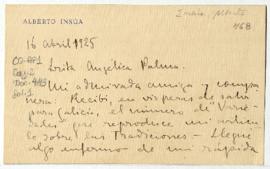 Insúa, Alberto
ALBERTO INSÚA
468
16 Abril 1925
Srita Angélica Palma.
Mi admirada amiga y compa
ñera: Recibí, en vísperas de salir
para Galicia, el número de "Varie
dades" que reproduce mi artícu
lo sobre las Tradiciones. Llegué
algo enfermo de mi rápida